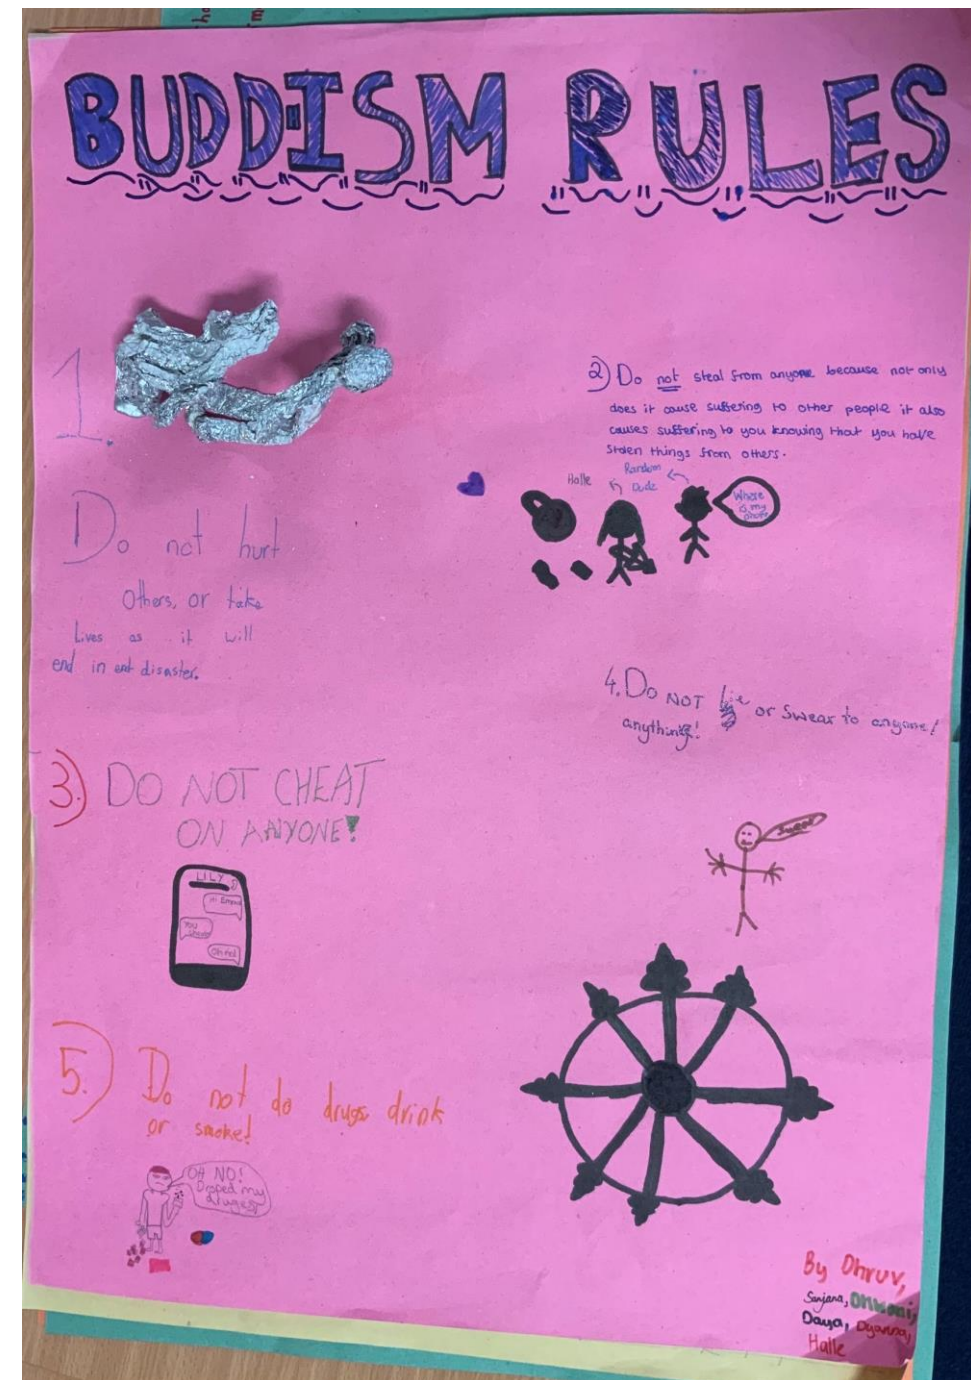 BUDDISM RULES
1.
Do not hurt
Others, or take
Lives as it will
end in disaster.
2) Do not steal from anyone because not only
does it cause suffering to other people it also
causes suffering to you knowing that you have
stolen things from others.
Halle
Random
Dude
Where
is my
phone
3.) DO NOT CHEAT
ON ANYONE!
LILY
Hi Emma
You
Oh no!
4. Do NOT Lie or Swear to anyone/
anything!
Swear
5.) Do not do drugs, drink
or smoke!
OH NO!
Dropped my
druges!
By Dhruv,
Sanjana,
Daya, Dyanna,
Halle